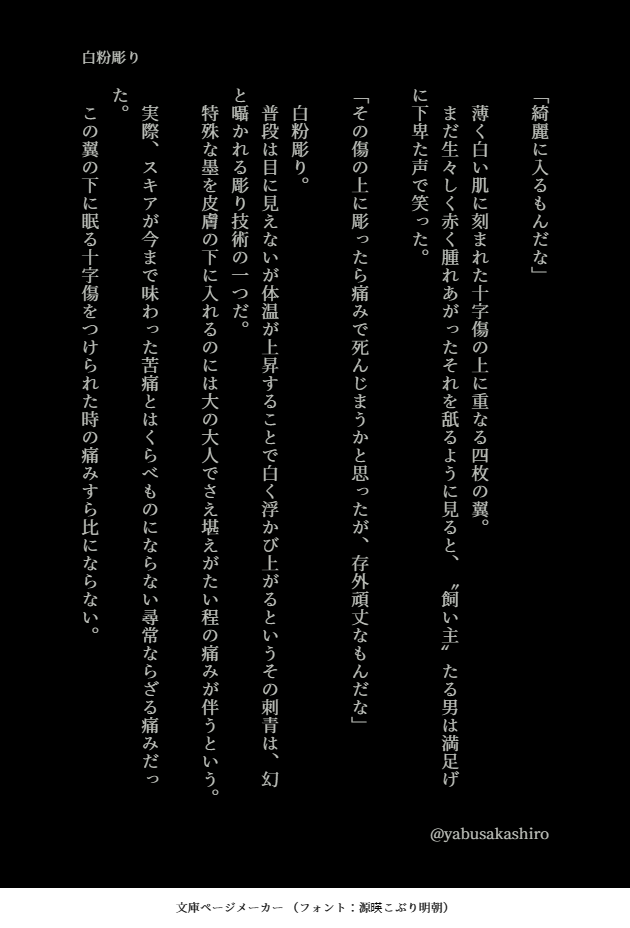 白粉彫り
「綺麗に入るもんだな」
　薄く白い肌に刻まれた十字傷の上に重なる四枚の翼。
　まだ生々しく赤く腫れあがったそれを舐るように見ると、〝飼い主〟たる男は満足げ
に下卑た声で笑った。
「その傷の上に彫ったら痛みで死んじまうかと思ったが、存外頑丈なもんだな」
　白粉彫り。
　普段は目に見えないが体温が上昇することで白く浮かび上がるというその刺青は、幻
と囁かれる彫り技術の一つだ。
　特殊な墨を皮膚の下に入れるのには大の大人でさえ堪えがたい程の痛みが伴うという。
　実際、スキアが今まで味わった苦痛とはくらべものにならない尋常ならざる痛みだっ
た。
　この翼の下に眠る十字傷をつけられた時の痛みすら比にならない。
@yabusakashiro
文庫ページメーカー（フォント：源暎こぶり明朝）